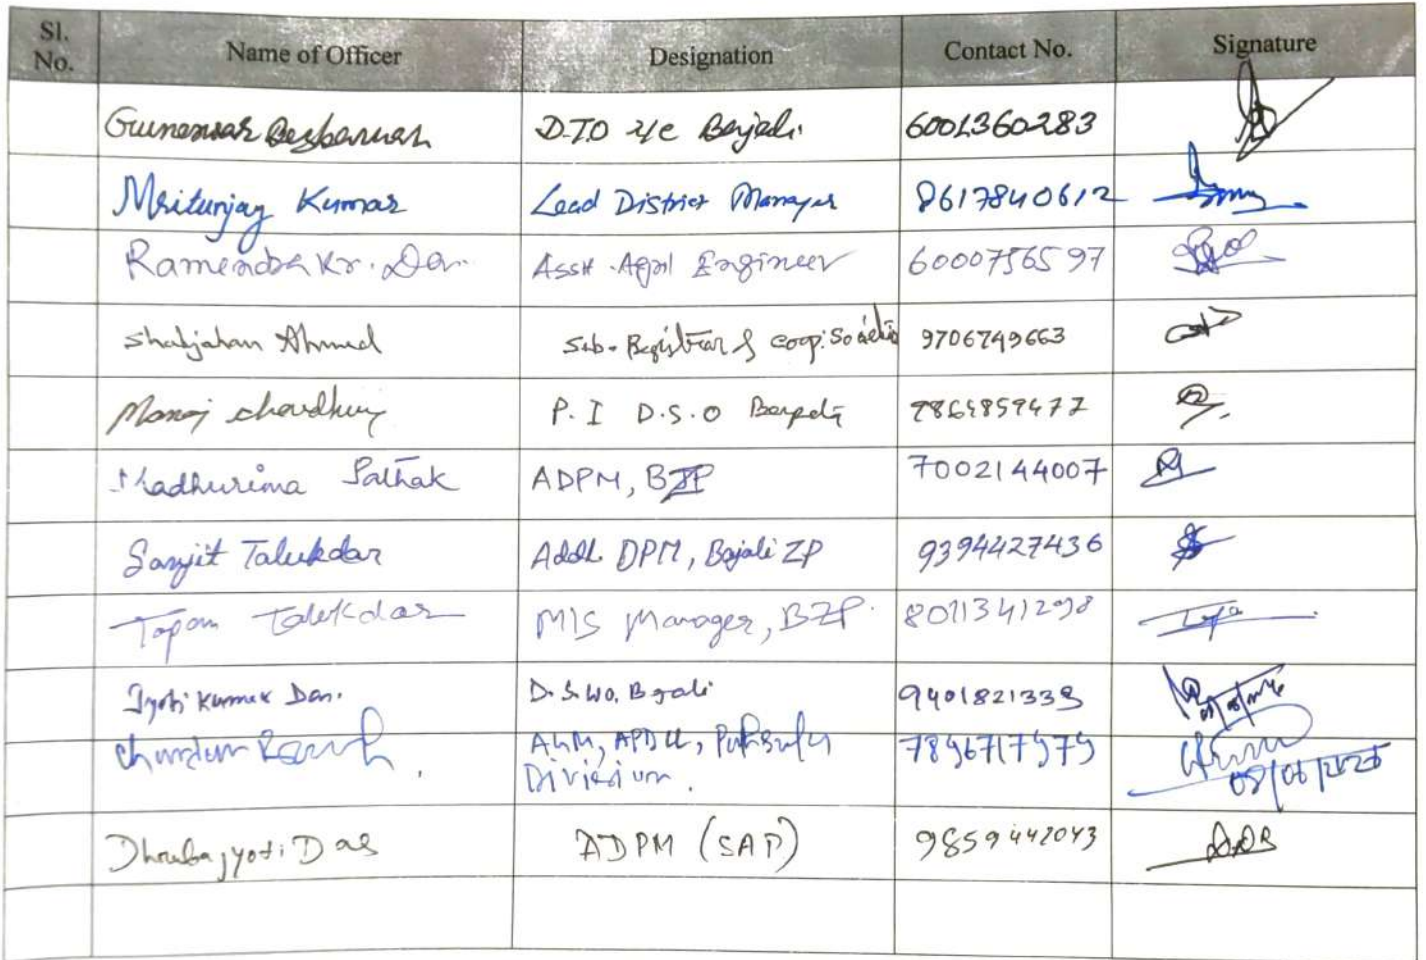 Sl. No. Name of Officer Designation Contact No. Signature
D.T.O i/c Bajali 6001360283
Mritunjay Kumar Lead District Manager 8617840612
Ramendra Kr. Das Asstt. Agril Engineer 6000756597
Shahjahan Ahmed Sub-Registrar of coop. Societies 9706749663
Manoj Choudhury P.I D.S.O
Madhurima Pathak ADPM, BZP 7002144007
Sanjit Talukdar Addl. DPM, Bajali ZP 9394427436
Tapan Talukdar MIS Manager, BZP. 8011341298
Jyoti Kumar Das. D.S.W.O. Bajali 9401821339
AGM, APDCL,
Division.
Dhrubajyoti Das ADPM (SAP) 9859442043